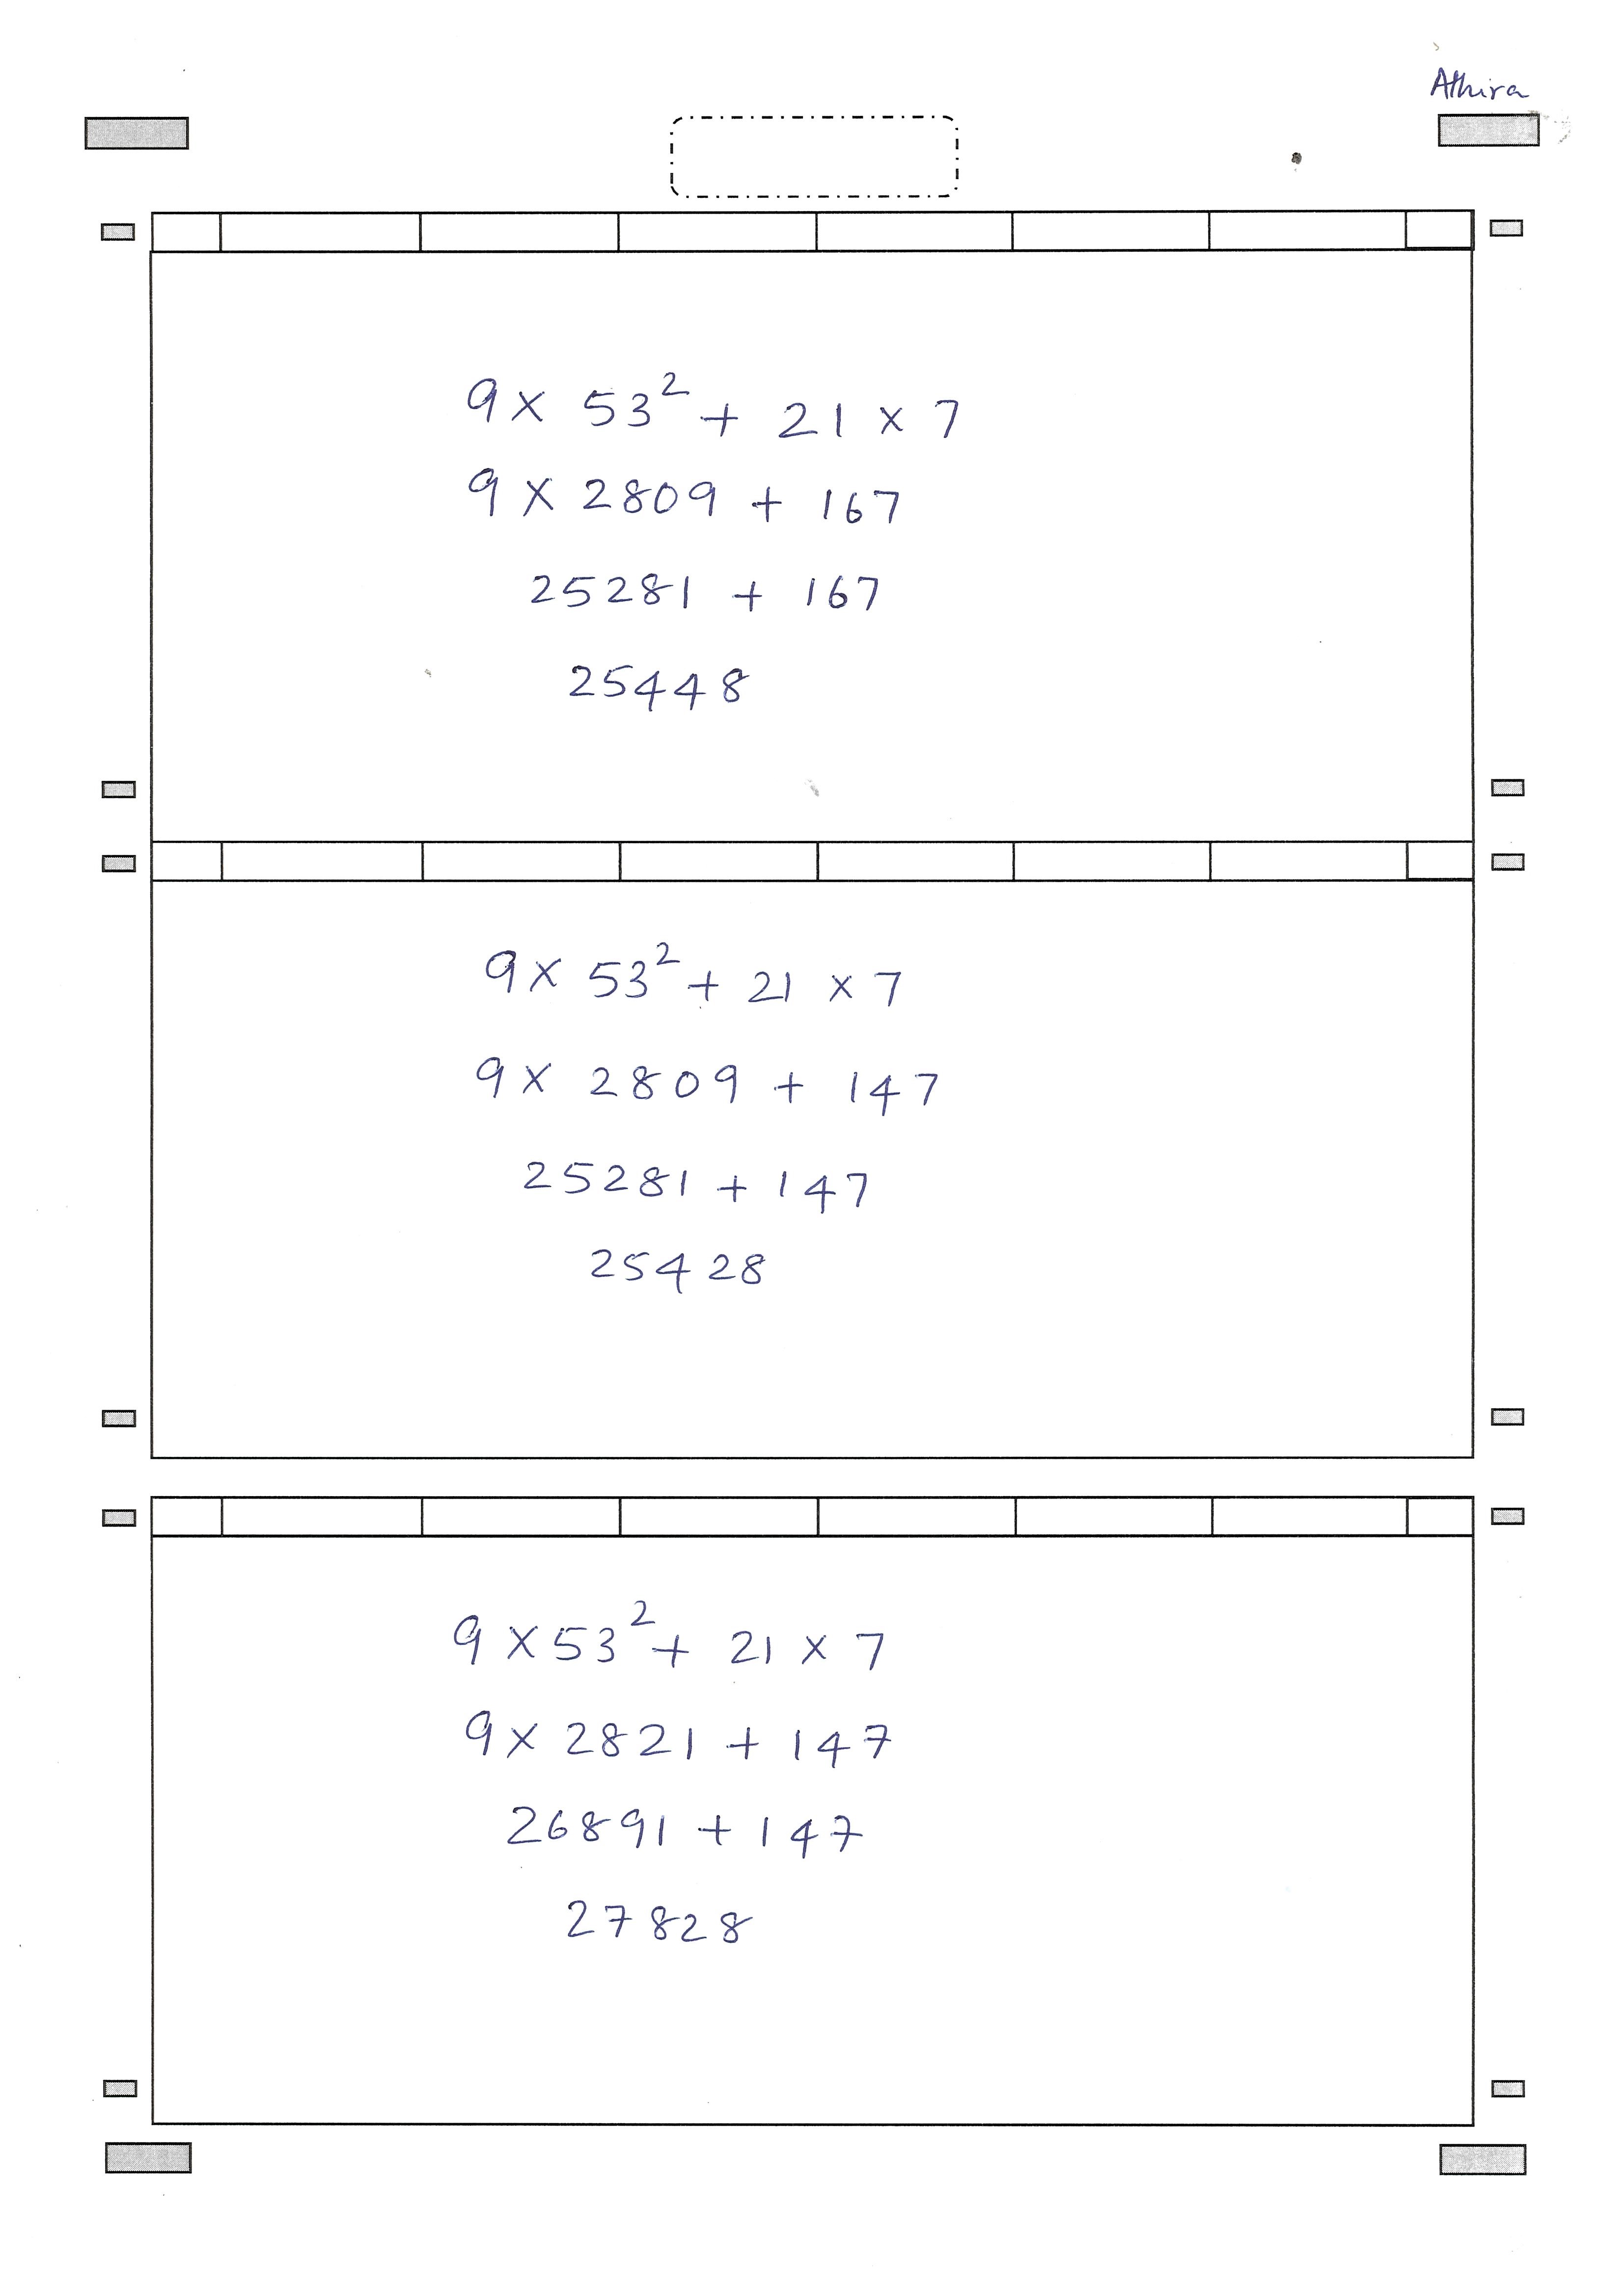 Athira
9 × 53² + 21 × 7
9 × 2809 + 167
25281 + 167
25448
9 × 53² + 21 × 7
9 × 2809 + 147
25281 + 147
25428
9 × 53² + 21 × 7
9 × 2821 + 147
26891 + 147
27828